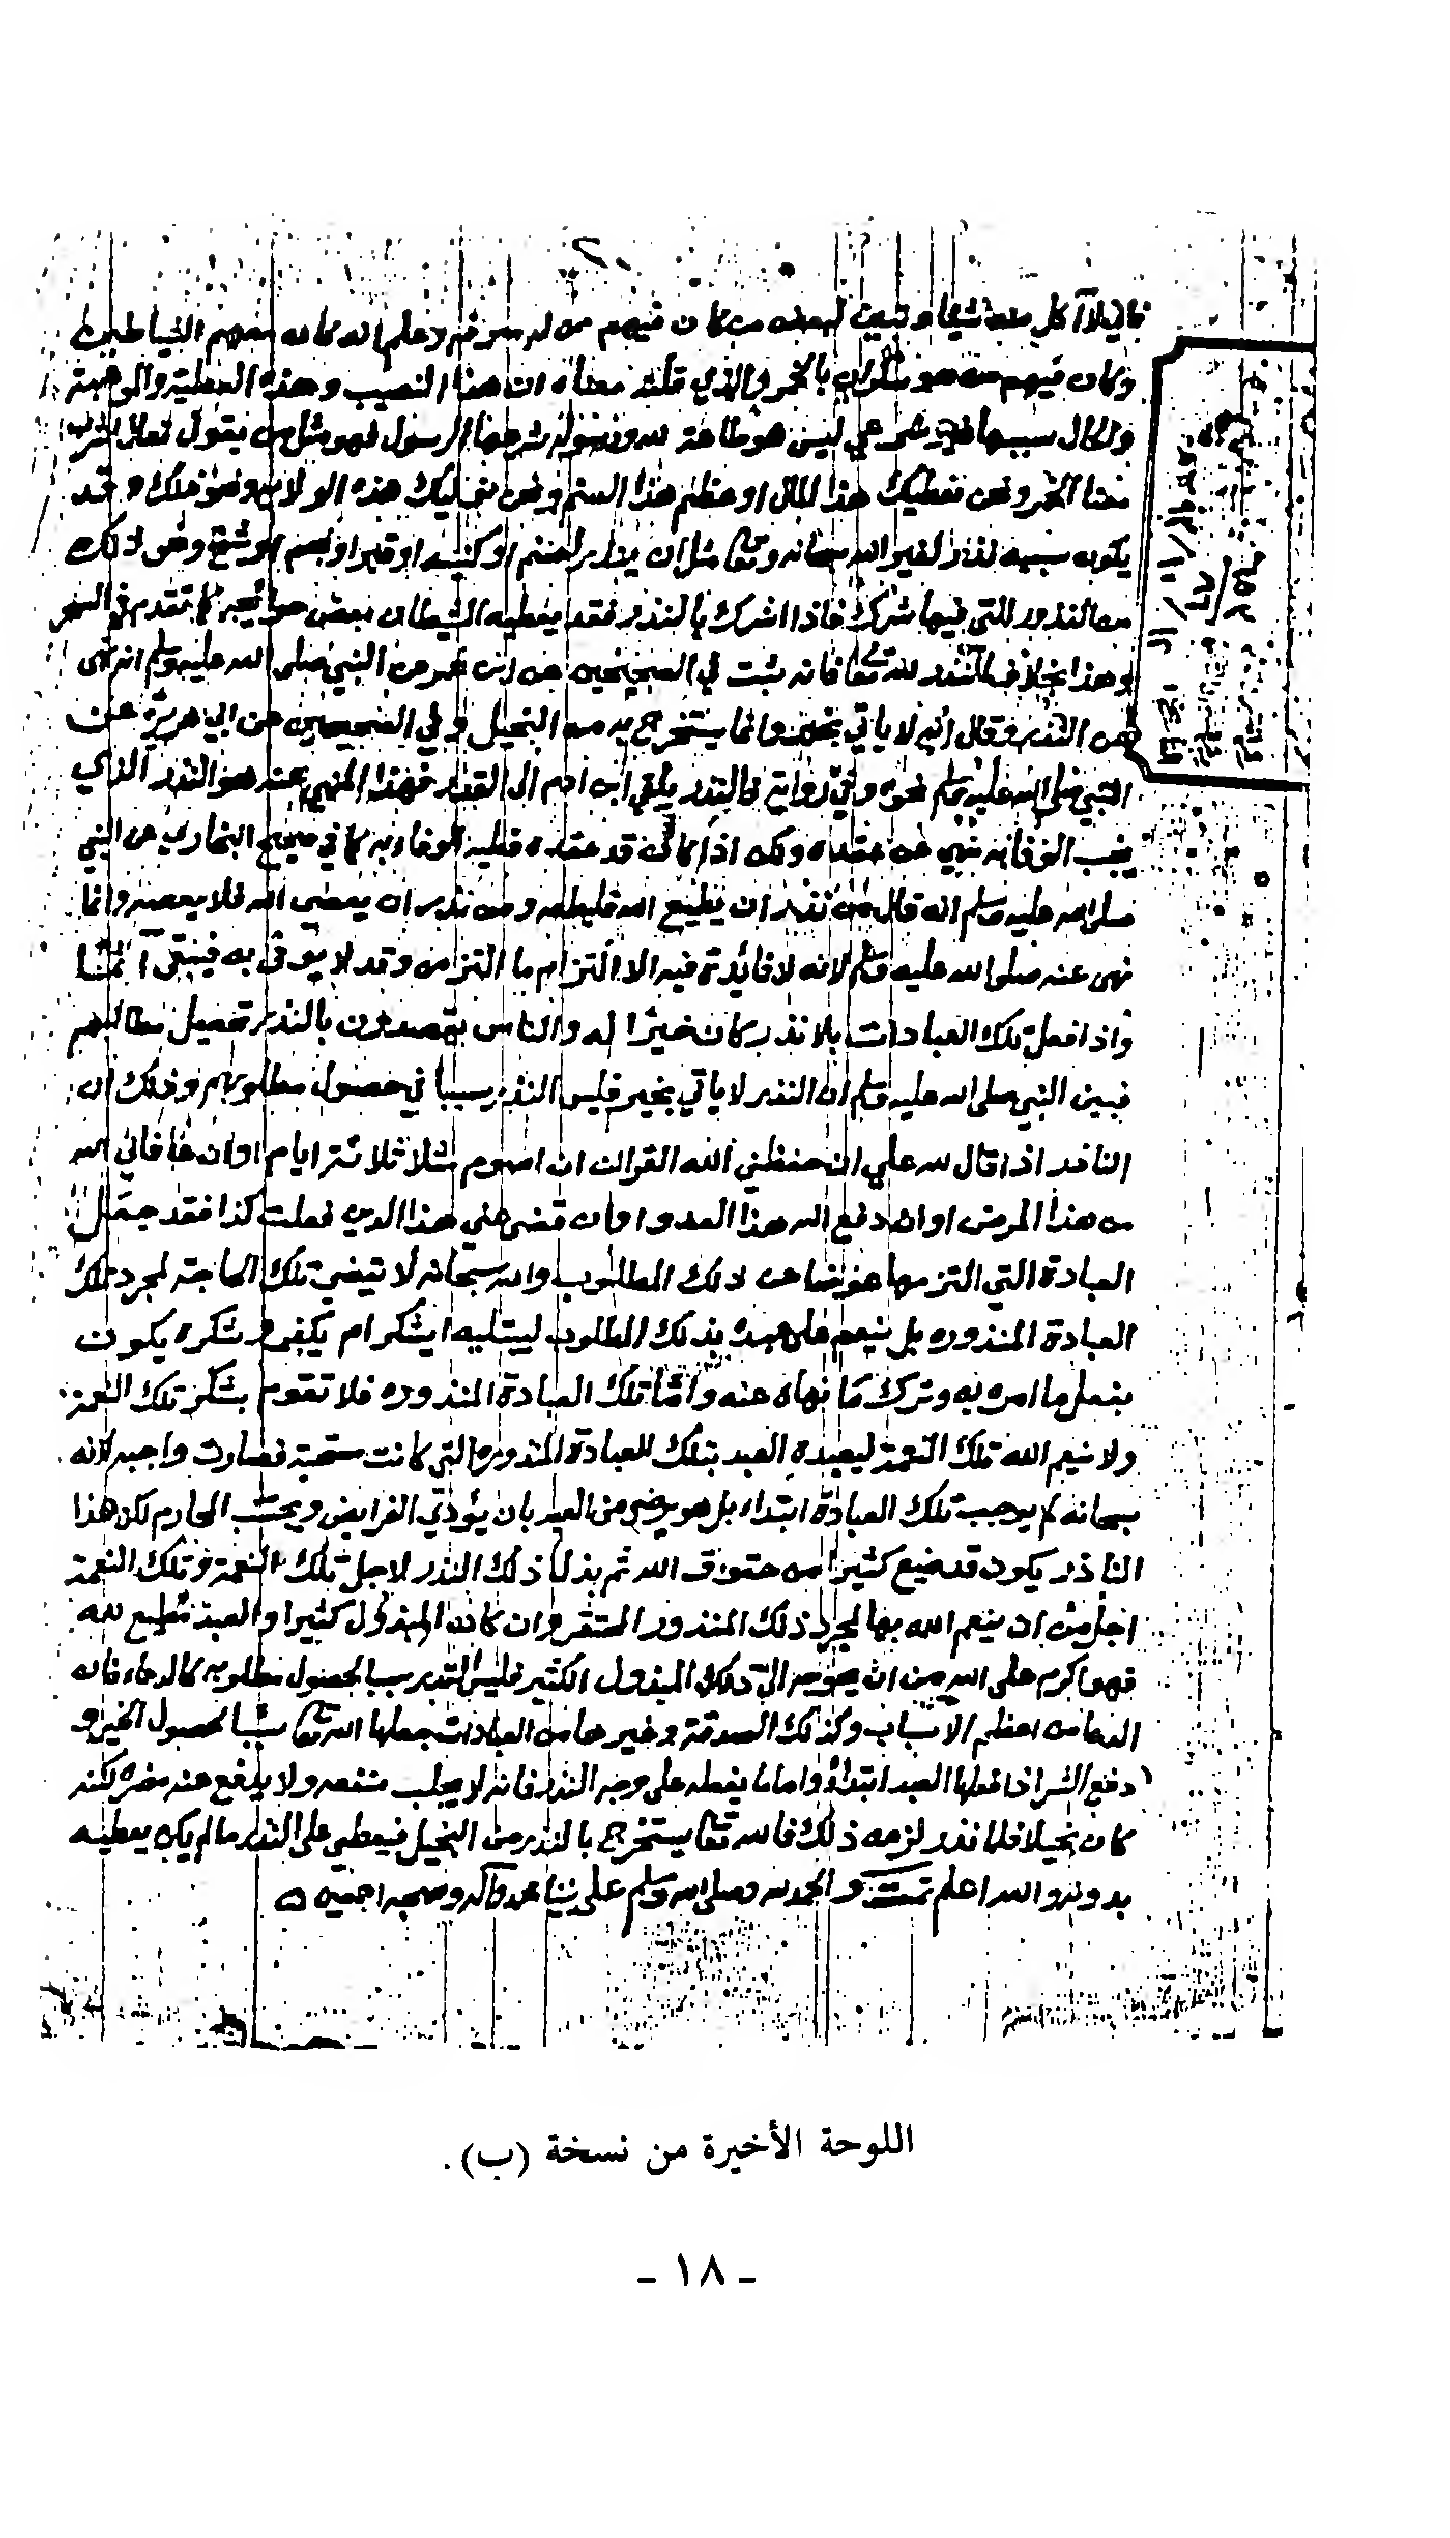 فاني لا آكل منه شيئا وتبين لبعض من كان فيهم من لم يعرف وعلم انه كانه معهم الشياطين
وكان فيهم من هو بالخمر والذي قلته معناه ان هذا النصيب وهذه العطية والموهبة
ولكان سببها شرعي ليس هو طاعة لله ورسوله شرعها الرسول فهو مثل من يقول تعالا اشرب
معنا الخمر ونحن نعطيك هذا المال او عظم هذا الصنم ونحن نوليك هذه الولاية ونحو ذلك وقد
يكون سببه نذر لغير الله سبحانه وتعا مثل ان ينذر لصنم او كنيسه او قبر او نجم او شيخ ونحو ذلك
من النذور التي فيها شرك فاذا اشرك بالنذر فقد يعطيه الشيطان بعض حوائجه كما تقدم في السحر
وهذا بخلاف النذر لله تعا فانه ثبت في الصحيحين عن ابن عمر عن النبي صلى الله عليه وسلم انه نهى
عن النذر وقال انه لا ياتي بخير وانما يستخرج به من البخيل وفي الصحيحين عن ابي هريرة عن
النبي صلى الله عليه وسلم نحوه وفي رواية فالنذر يلقي ابن ادم الى القدر فهذا المنهي عنه هو النذر الذي
يجب الوفا به نهي عن عقده ولكن اذا كان قد عقده فعليه الوفاء به كما في صحيح البخاري عن النبي
صلى الله عليه وسلم انه قال من نذر ان يطيع الله فليطعه ومن نذر ان يعصى الله فلا يعصه وانما
نهى عنه صلى الله عليه وسلم لانه لا فايدة فيه الا التزام ما التزمه وقد لا يوفى به فيبقى آثما
واذا فعل تلك العبادات بلا نذر كان خيرا له والناس يقصدون بالنذر تحصيل مطالبهم
فبين النبي صلى الله عليه وسلم ان النذر لا ياتي بخير فليس النذر سببا في حصول مطلوبهم وذلك ان
الناذر اذا قال لله علي ان حفظني الله القران ان اصوم مثلا ثلاثة ايام او ان عافاني الله
من هذا المرض او ان دفع الله هذا العدو او ان قضى عني هذا الدين فعلت كذا فقد جعل
العبادة التي التزمها عوضا عن ذلك المطلوب والله سبحانه لا تيضي تلك الحاجة لمجرد تلك
العبادة المنذوره بل ينعم على عبده بذلك المطلوب ليبتليه ايشكر ام يكفر وشكره يكون
بفعل ما امره به وترك ما نهاه عنه وأما تلك العبادة المنذوره فلا تقوم بشكر تلك النعمة
ولا ينعم الله تلك النعمة ليعبده العبد بتلك العبادة المنذوره التي كانت مستحبة فصارت واجبه لانه
سبحانه لم يوجب تلك العبادة ابتداء بل هو يرضى من العبد بان يؤدي الفرايض ويجتنب المحارم لكن هذا
الناذر يكون قد ضيع كثيرا من حقوق الله ثم بذل ذلك النذر لاجل تلك النعمة وتلك النعمة
اجل من ان ينعم الله بها لمجرد ذلك المنذور المستقر وان كان المبذول كثيرا والعبد مطيع لله
فهو اكرم على الله من ان يحوجه الى ذلك المبذول الكثير فليس النذر سببا لحصول مطلوبه كالدعاء فانه
الدعا من اعظم الاسباب وكذلك الصدقة وغيرها من العبادات جعلها الله تعا سببا لحصول الخير و
دفع الشر اذا فعلها العبد ابتداءً واما ما يفعله على وجه النذر فانه لا يجلب منفعه ولا يدفع عنه مضره لكنه
كان بخيلا فلما نذر لزمه ذلك فالله تعا يستخرج بالنذر من البخيل فيعطي على النذر ما لم يكن يعطيه
بدونه والله اعلم تمت والحمد لله وصلى الله وسلم على نبينا محمد وآله وصحبه اجمعين
اللوحة الأخيرة من نسخة (ب).
- ١٨ -